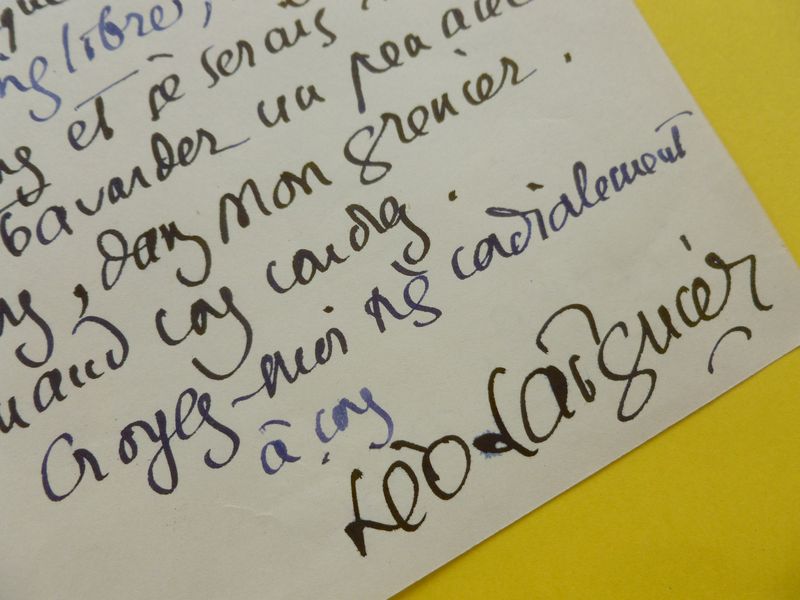 libre,
et je serais
bavarder un peu avec
dans mon grenier.
quand vous voudrez.
Croyez-moi très cordialement
à vous
Léo Larguier